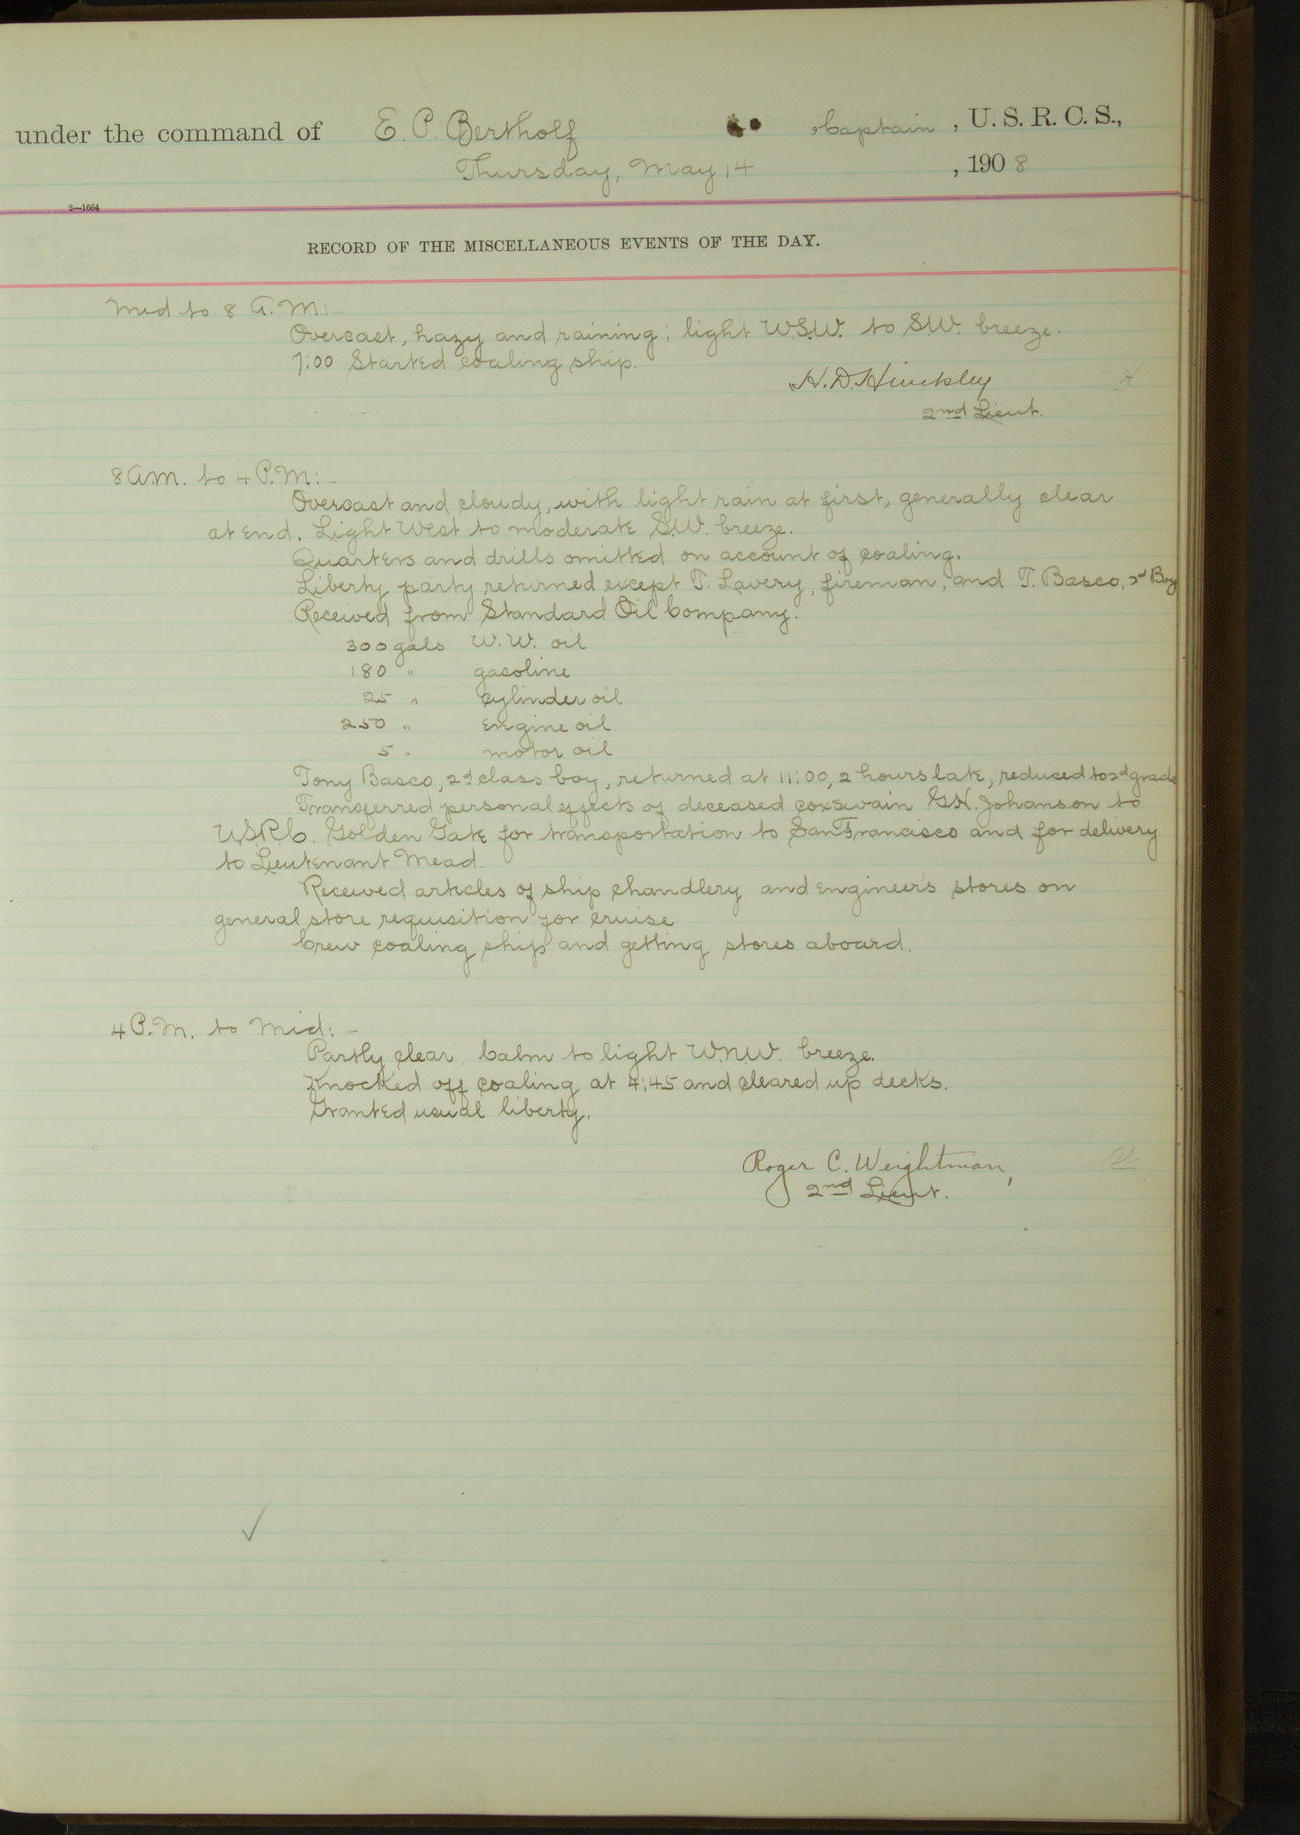 under the command of E. P. Bertholf , Captain , U. S. R. C. S.,
Thursday, May 14 , 1908
2—1664
RECORD OF THE MISCELLANEOUS EVENTS OF THE DAY.
Mid to 8 A.M:-
Overcast, hazy and raining; light W.S.W. to S.W. breeze.
7:00 Started coaling ship.
H. D. Hinckley
2nd Lieut.
8 A.M. to 4 P.M:-
Overcast and cloudy, with light rain at first, generally clear
at end. Light West to moderate S.W. breeze.
Quarters and drills omitted on account of coaling.
Liberty party returned except T. Lavery, fireman, and T. Basco, 2d Boy
Received from Standard Oil Company.
300 gals W.W. oil
180 " gasoline
25 " cylinder oil
250 " engine oil
5 " motor oil
Tony Basco, 2d class boy, returned at 11:00, 2 hours late, reduced to 2d grade
Transferred personal effects of deceased coxswain G.H. Johanson to
U.S.R.C. Golden Gate for transportation to San Francisco and for delivery
to Lieutenant Mead.
Received articles of ship chandlery and engineer's stores on
general store requisition for cruise
Crew coaling ship and getting stores aboard.
4 P.M. to Mid:-
Partly clear. Calm to light W.N.W. breeze.
Knocked off coaling at 4:45 and cleared up decks.
Granted usual liberty.
Roger C. Weightman,
2nd Lieut.